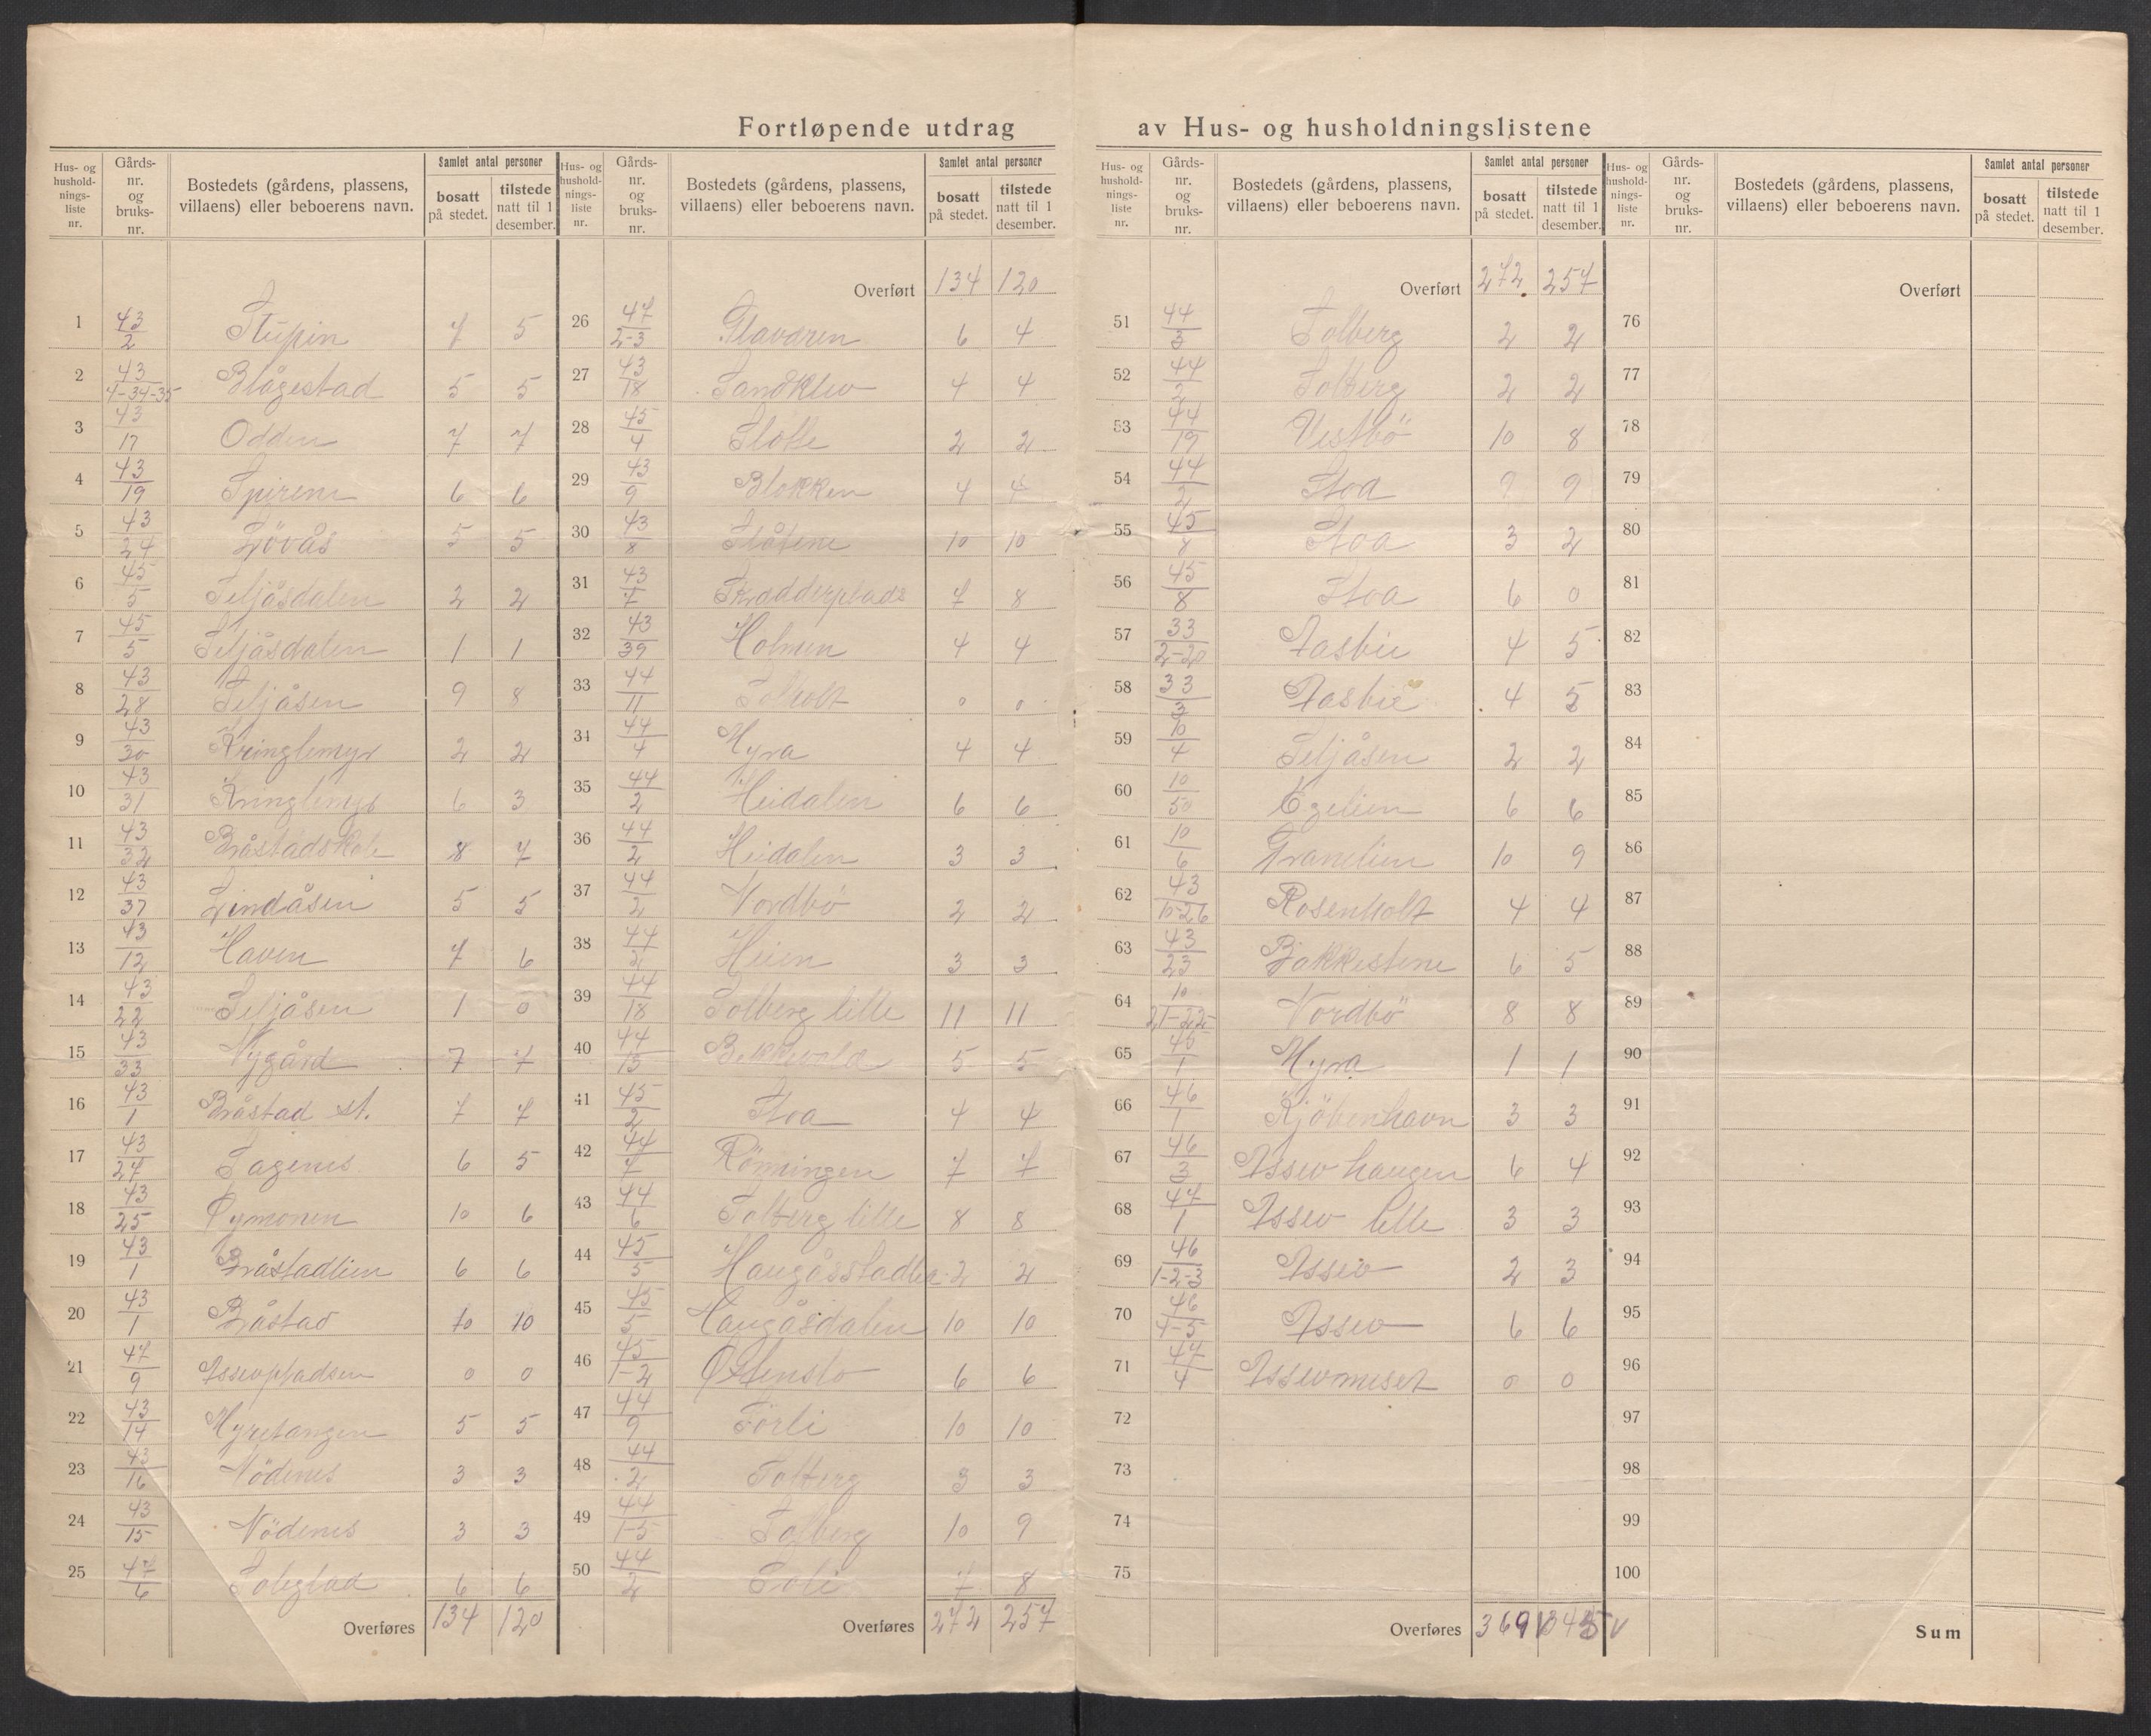 Fortløpende utdrag av Hus- og husholdningslistene
Hus- og husholdnings-liste nr. | Gårds-nr. og bruks-nr. | Bostedets (gårdens, plassens, villaens) eller beboerens navn. | Samlet antal personer | bosatt på stedet. | tilstede natt til 1 desember.
1 43/2 Stupin 7 5
2 43/4-34-35 Blågestad 5 5
3 43/17 Odden 7 7
4 43/19 Spirene 6 6
5 43/24 Lövås 5 5
6 45/5 Seljåsdalen 2 2
7 45/5 Seljåsdalen 1 1
8 43/28 Seljåsen 9 8
9 43/30 Kringlemyr 2 2
10 43/31 Kringlemyr 6 3
11 43/32 Bråstadskole 8 7
12 43/37 Lindåsen 5 5
13 43/12 Haven 7 6
14 43/22 Seljåsen 1 0
15 43/33 Nygård 7 7
16 43/1 Bråstad st. 7 7
17 43/27 Sagenes 6 5
18 43/25 Øymonen 10 6
19 43/1 Bråstadlien 6 6
20 43/1 Bråstad 10 10
21 47/9 Assevpladsen 0 0
22 43/14 Myretangen 5 5
23 43/16 Nödenes 3 3
24 43/15 Nödenes 3 3
25 47/6 6 6
Overføres 134 120
Hus- og husholdnings-liste nr. | Gårds-nr. og bruks-nr. | Bostedets (gårdens, plassens, villaens) eller beboerens navn. | Samlet antal personer | bosatt på stedet. | tilstede natt til 1 desember.
Overført 134 120
26 47/2-3 6 4
27 43/18 Sandklev 4 4
28 45/4 Slotte 2 2
29 43/9 Blokken 4 4
30 43/8 Slåtene 10 10
31 43/7 Skradderplads 7 8
32 43/39 Holmen 4 4
33 44/11 Solholt 0 0
34 44/4 Myra 4 4
35 44/2 Heidalen 6 6
36 44/2 Heidalen 3 3
37 44/2 Nordbö 2 2
38 44/ Heien 3 3
39 44/18 Solberg lille 11 11
40 44/15 Bekkevold 5 5
41 45/2 Stoa 4 4
42 44/7 Rönningen 7 7
43 44/6 Solberg lille 8 8
44 45/5 2 2
45 45/5 Haugåsdalen 10 10
46 45/1-2 Østensbo 6 6
47 44/9 Sörli 10 10
48 44/2 Solberg 3 3
49 44/1-5 Solberg 10 9
50 44/2 Soli 7 8
Overføres 272 257
Hus- og husholdnings-liste nr. | Gårds-nr. og bruks-nr. | Bostedets (gårdens, plassens, villaens) eller beboerens navn. | Samlet antal personer | bosatt på stedet. | tilstede natt til 1 desember.
Overført 272 257
51 44/3 Solberg 2 2
52 44/2 Solberg 2 2
53 44/19 Vestbö 10 8
54 44/2 Stoa 9 9
55 45/8 Stoa 3 2
56 45/8 Stoa 6 0
57 33/2-20 Aasbie 4 5
58 33/3 Aasbie 4 5
59 10/4 Seljåsen 2 2
60 10/50 Egelien 6 6
61 10/6 Granelien 10 9
62 43/10-26 Rosenholt 4 4
63 43/23 Bakkestene 6 5
64 10/21-22 Nordbö 8 8
65 46/1 Myra 1 1
66 46/1 Kjöbenhavn 3 3
67 46/3 Assev haugen 6 4
68 47/1 Assev lille 3 3
69 46/1-2-3 Assev 2 3
70 46/4-5 Assev 6 6
71 47/4 0 0
72
73
74
75
Overføres 369 345
Hus- og husholdnings-liste nr. | Gårds-nr. og bruks-nr. | Bostedets (gårdens, plassens, villaens) eller beboerens navn. | Samlet antal personer | bosatt på stedet. | tilstede natt til 1 desember.
Overført
76
77
78
79
80
81
82
83
84
85
86
87
88
89
90
91
92
93
94
95
96
97
98
99
100
Sum